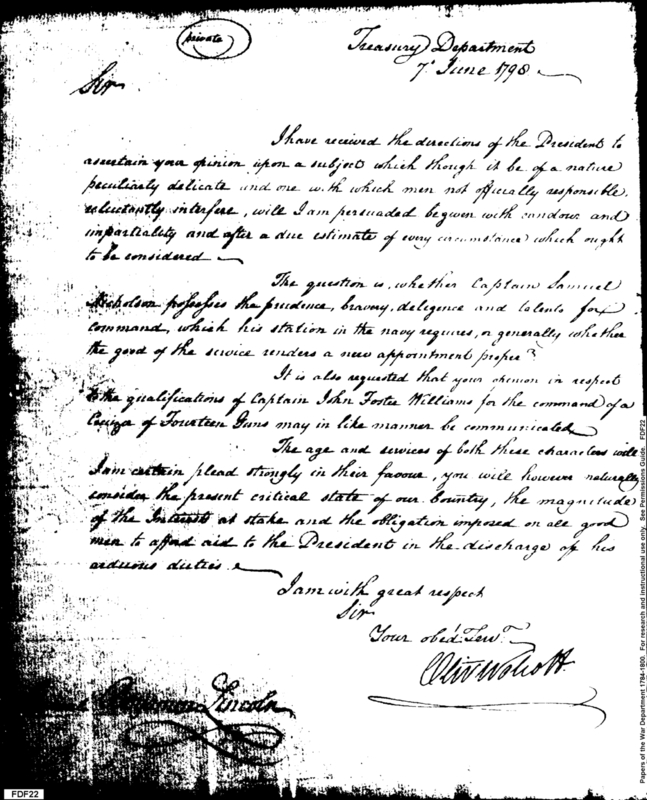 private
Treasury Department
7th June 1798
Sir
I have received the directions of the President to
ascertain your opinion upon a subject which though it be of a nature
peculiarly delicate and one with which men not officially responsible,
reluctantly interfere, will I am persuaded be given with candour and
impartiality and after a due estimate of every circumstance which ought
to be considered
The question is, whether Captain Samuel
Nicholson possesses the prudence, bravery, deligence and talents for
command, which his station in the navy requires, or generally whether
the good of the service renders a new appointment proper?
It is also requested that your opinion in respect
to the qualifications of Captain John Foster Williams for the command of a
of Fourteen Guns may in like manner be communicated
The age and services of both these characters will
I am certain plead strongly in their favour, you will however naturally
consider the present critical state of our Country, the magnitude
of the Interests at stake and the obligation imposed on all good
men to afford aid to the President in the discharge of his
arduous duties.
I am with great respect
Sir
Your obed. Servt.
Oliv Wolcott
Benjamin Lincoln
FDF22
Papers of the War Department 1784-1800. For research and instructional use only. See Permissions Guide. FDF22